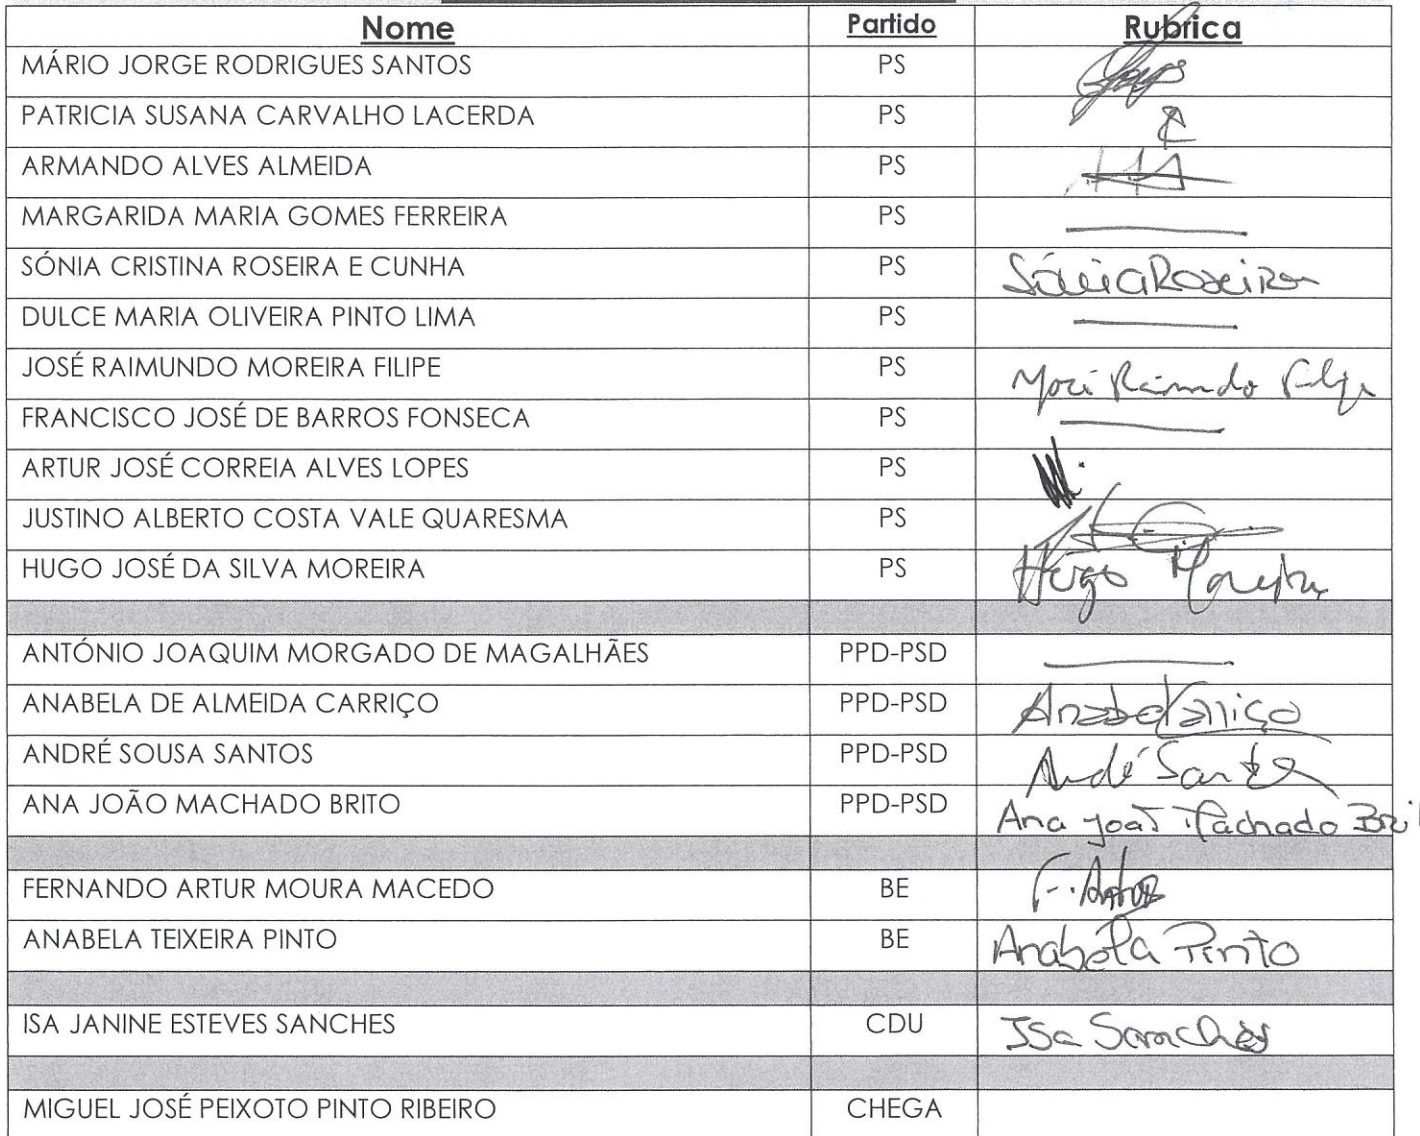 Nome Partido Rubrica
MÁRIO JORGE RODRIGUES SANTOS PS
PATRICIA SUSANA CARVALHO LACERDA PS
ARMANDO ALVES ALMEIDA PS
MARGARIDA MARIA GOMES FERREIRA PS
SÓNIA CRISTINA ROSEIRA E CUNHA PS Sónia Roseira
DULCE MARIA OLIVEIRA PINTO LIMA PS
JOSÉ RAIMUNDO MOREIRA FILIPE PS José Raimundo Filipe
FRANCISCO JOSÉ DE BARROS FONSECA PS
ARTUR JOSÉ CORREIA ALVES LOPES PS
JUSTINO ALBERTO COSTA VALE QUARESMA PS
HUGO JOSÉ DA SILVA MOREIRA PS Hugo Moreira
ANTÓNIO JOAQUIM MORGADO DE MAGALHÃES PPD-PSD
ANABELA DE ALMEIDA CARRIÇO PPD-PSD Anabela Carriço
ANDRÉ SOUSA SANTOS PPD-PSD André Santos
ANA JOÃO MACHADO BRITO PPD-PSD Ana João Machado Bri
FERNANDO ARTUR MOURA MACEDO BE
ANABELA TEIXEIRA PINTO BE Anabela Pinto
ISA JANINE ESTEVES SANCHES CDU Isa Sanches
MIGUEL JOSÉ PEIXOTO PINTO RIBEIRO CHEGA